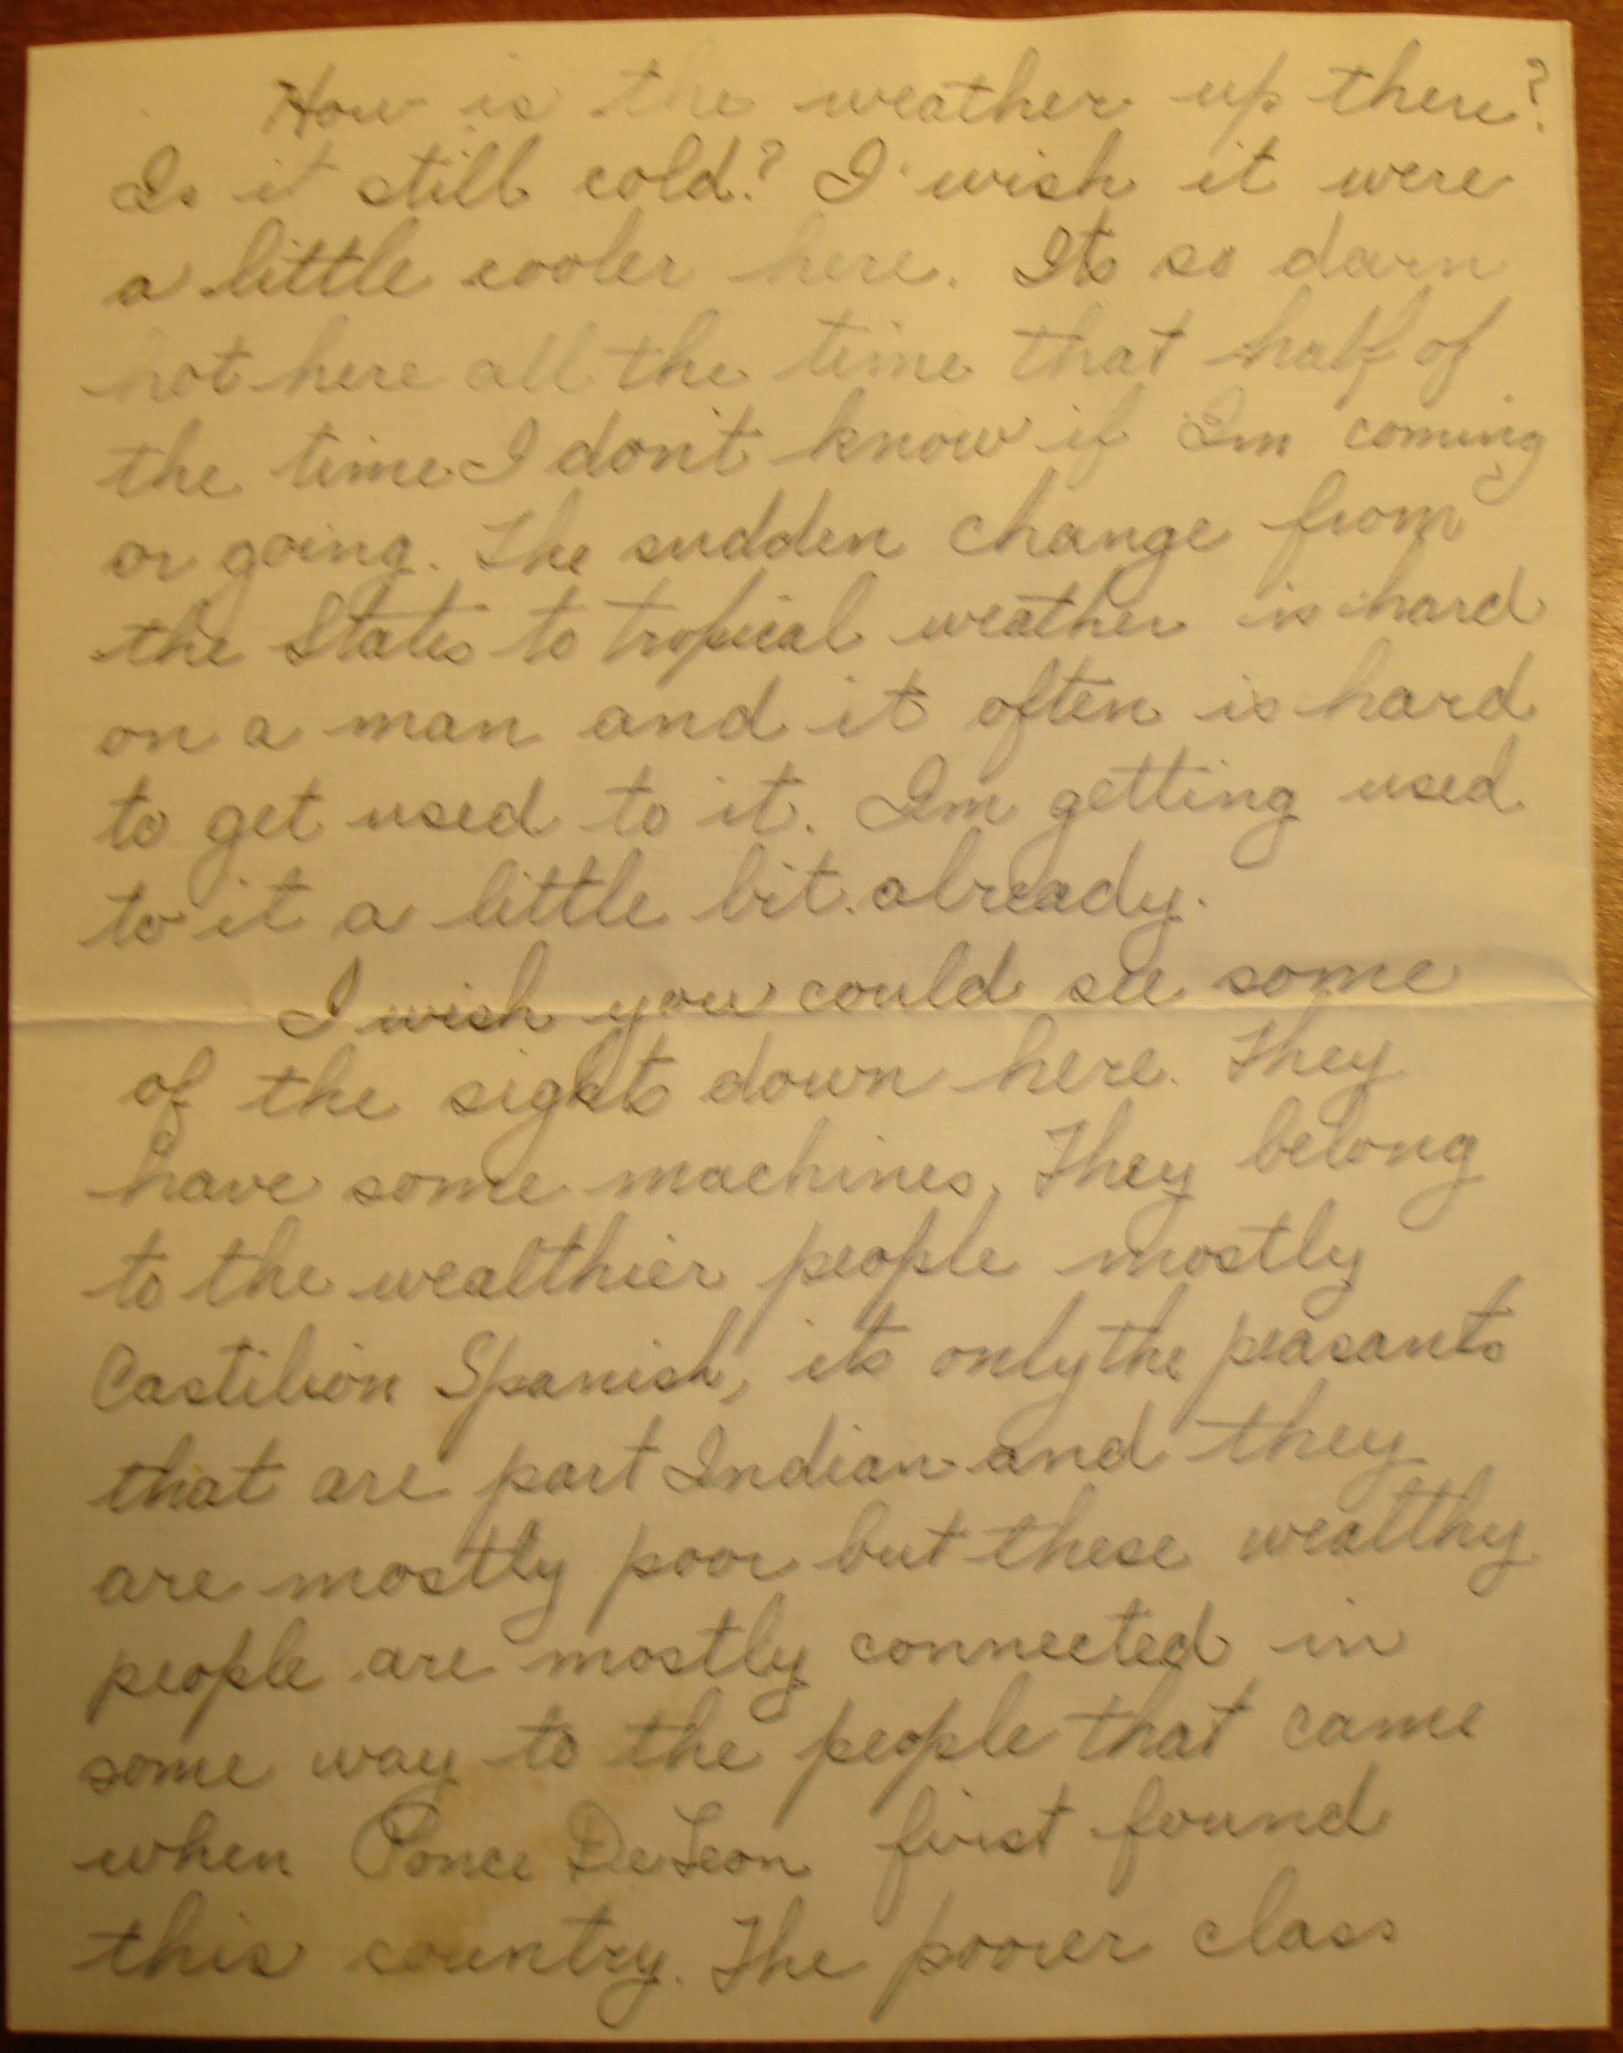 How is the weather up there?
Is it still cold? I wish it were
a little cooler here. Its so darn
hot here all the time that half of
the time I don't know if Im coming
or going. The sudden change from
the States to tropical weather is hard
on a man and it often is hard
to get used to it. Im getting used
to it a little bit already.
I wish you could see some
of the sights down here. They
have some machines, They belong
to the wealthier people mostly
Castilion Spanish, its only the peasants
that are part Indian and they
are mostly poor but these wealthy
people are mostly connected in
some way to the people that came
when Ponce DeLeon first found
this country. The poorer class